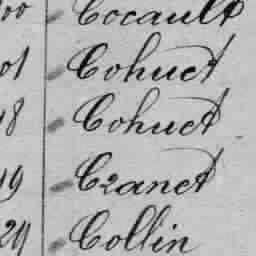 00 Cocault
01 Cohuet
18 Cohuet
19 Czanet
29 Collin